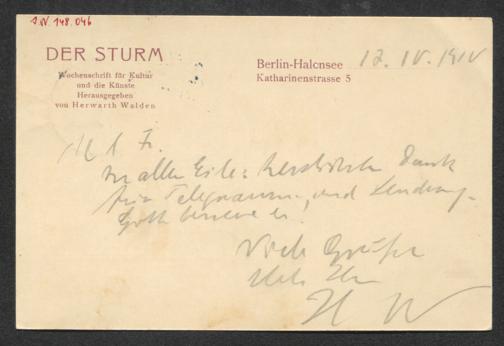 I.N. 148.046
DER STURM
Wochenschrift für Kultur
und die Künste
Herausgegeben
von Herwarth Walden
Berlin-Halensee
Katharinenstrasse 5
in aller Eile: herzlichsten Dank
für Telegramm und Sendung.
Viele Grüße
H W